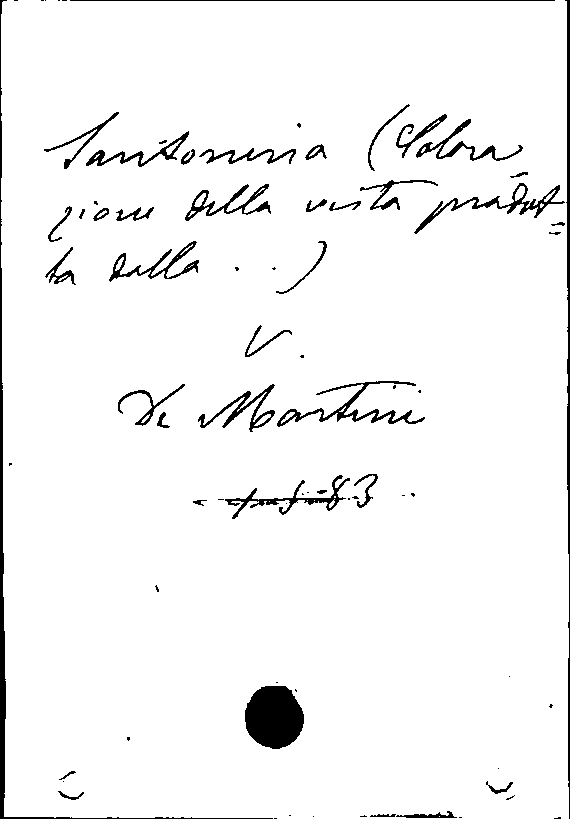 Santonina (Colora
zione della vista prodot=
ta dalla ...)
V.
De Martini